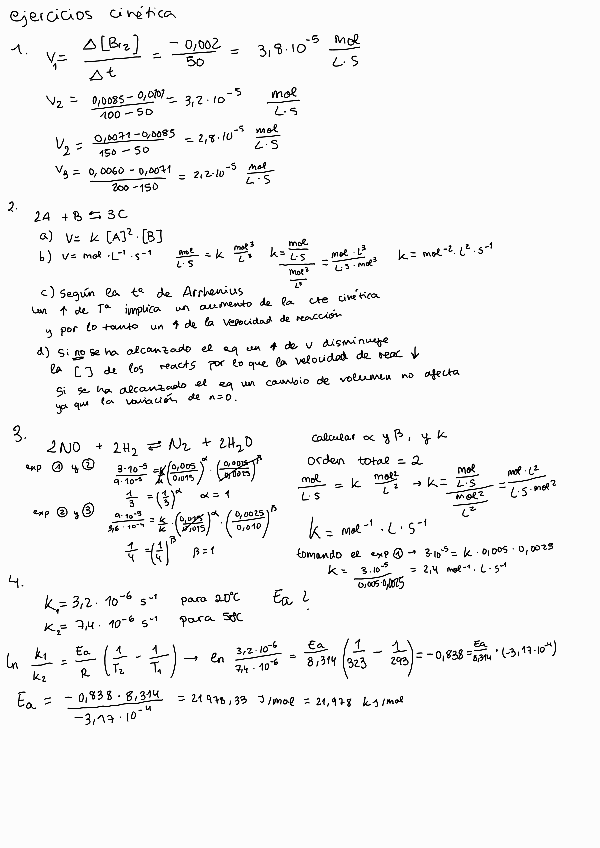 ejercicios cinética
1. V₁ = Δ[Br₂] / Δt = -0,002 / 50 = 3,8·10⁻⁵ mol / L·s
V₂ = 0,0085 - 0,0101 / 100 - 50 = 3,2·10⁻⁵ mol / L·s
V₂ = 0,0071 - 0,0085 / 150 - 50 = 2,8·10⁻⁵ mol / L·s
V₃ = 0,0060 - 0,0071 / 200 - 150 = 2,2·10⁻⁵ mol / L·s
2. 2A + B ⇆ 3C
a) V = k [A]² · [B]
b) v = mol · L⁻¹ · s⁻¹ mol / L·s = k mol³ / L³ k = mol / L·s / mol³ / L³ = mol · L³ / L·s·mol³ k = mol⁻² · L² · s⁻¹
c) Según la tª de Arrhenius
un ↑ de Tª implica un aumento de la cte cinética
y por lo tanto un ↑ de la velocidad de reacción
d) Si no se ha alcanzado el eq un ↑ de v disminuye
la [ ] de los reacts por lo que la velocidad de reac ↓
Si se ha alcanzado el eq un cambio de volumen no afecta
ya que la variación de n=0.
3. 2NO + 2H₂ ⇌ N₂ + 2H₂O
exp ① y ② 3·10⁻⁵ / 9·10⁻⁵ = k / k (0,005 / 0,015)^α · (0,0025 / 0,0025)^β
1/3 = (1/3)^α α = 1
exp ② y ③ 9·10⁻⁵ / 3,6·10⁻⁴ = k / k · (0,015 / 0,015)^α · (0,0025 / 0,010)^β
1/4 = (1/4)^β β = 1
calcular α y β, y k
Orden total = 2
mol / L·s = k mol² / L² → k = mol / L·s / mol² / L² = mol · L² / L·s·mol²
k = mol⁻¹ · L · s⁻¹
tomando el exp ① → 3·10⁻⁵ = k · 0,005 · 0,0025
k = 3·10⁻⁵ / 0,005·0,0025 = 2,4 mol⁻¹ · L · s⁻¹
4.
k₁ = 3,2 · 10⁻⁶ s⁻¹ para 20ºC Ea ?
k₂ = 7,4 · 10⁻⁶ s⁻¹ para 50ºC
ln k₁ / k₂ = Ea / R (1 / T₂ - 1 / T₁) → ln 3,2·10⁻⁶ / 7,4·10⁻⁶ = Ea / 8,314 (1 / 323 - 1 / 293) = -0,838 = Ea / 8,314 · (-3,17·10⁻⁴)
Ea = -0,838 · 8,314 / -3,17 · 10⁻⁴ = 21978,33 J/mol = 21,978 kJ/mol